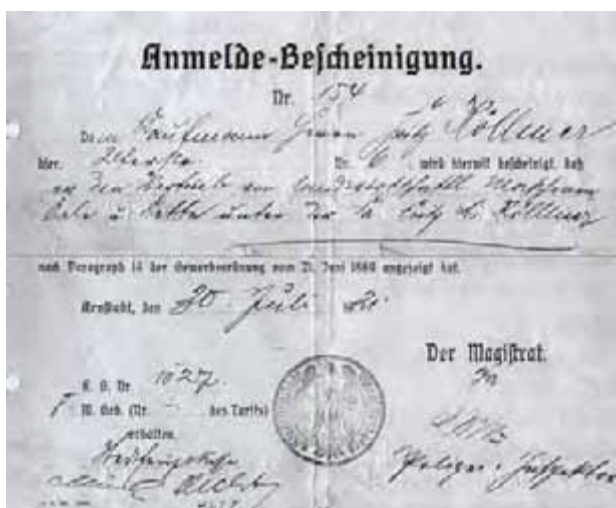 Anmelde-Bescheinigung.
Nr. 154
Dem Kaufmann Herrn Fritz Köllmer
hier, Nr. 6 wird hiermit bescheinigt, daß
er den Vertrieb von landwirtschaftl. Maschinen
Oele u. Fette unter der Fa. Fritz Köllmer
nach Paragraph 14 der Gewerbeordnung vom 21. Juni 1869 angezeigt hat.
Arnstadt, den 30 Juli
Der Magistrat.
K. B. Nr 1027.
M. Geb. (Nr. des Tarifs)
erhalten.
Polizei-Inspektor